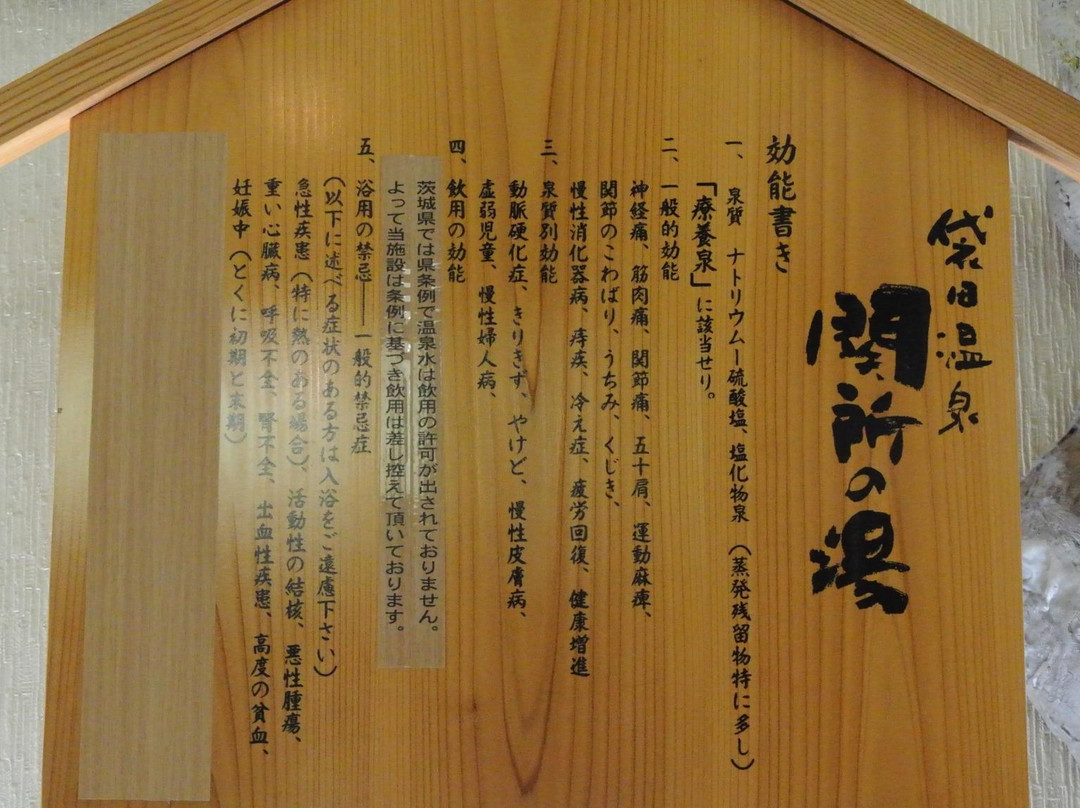 袋田温泉
関所の湯
効能書き
一、泉質 ナトリウムー硫酸塩、塩化物泉 (蒸発残留物特に多し)
「療養泉」に該当せり。
二、一般的効能
神経痛、筋肉痛、関節痛、五十肩、運動麻痺、
関節のこわばり、うちみ、くじき、
慢性消化器病、痔疾、冷え症、疲労回復、健康増進
三、泉質別効能
動脈硬化症、きりきず、やけど、慢性皮膚病、
虚弱児童、慢性婦人病、
四、飲用の効能
茨城県では県条例で温泉水は飲用の許可が出されておりません。
よって当施設は条例に基づき飲用は差し控えて頂いております。
五、浴用の禁忌――一般的禁忌症
(以下に述べる症状のある方は入浴をご遠慮下さい)
急性疾患(特に熱のある場合)、活動性の結核、悪性腫瘍、
重い心臓病、呼吸不全、腎不全、出血性疾患、高度の貧血、
妊娠中(とくに初期と末期)